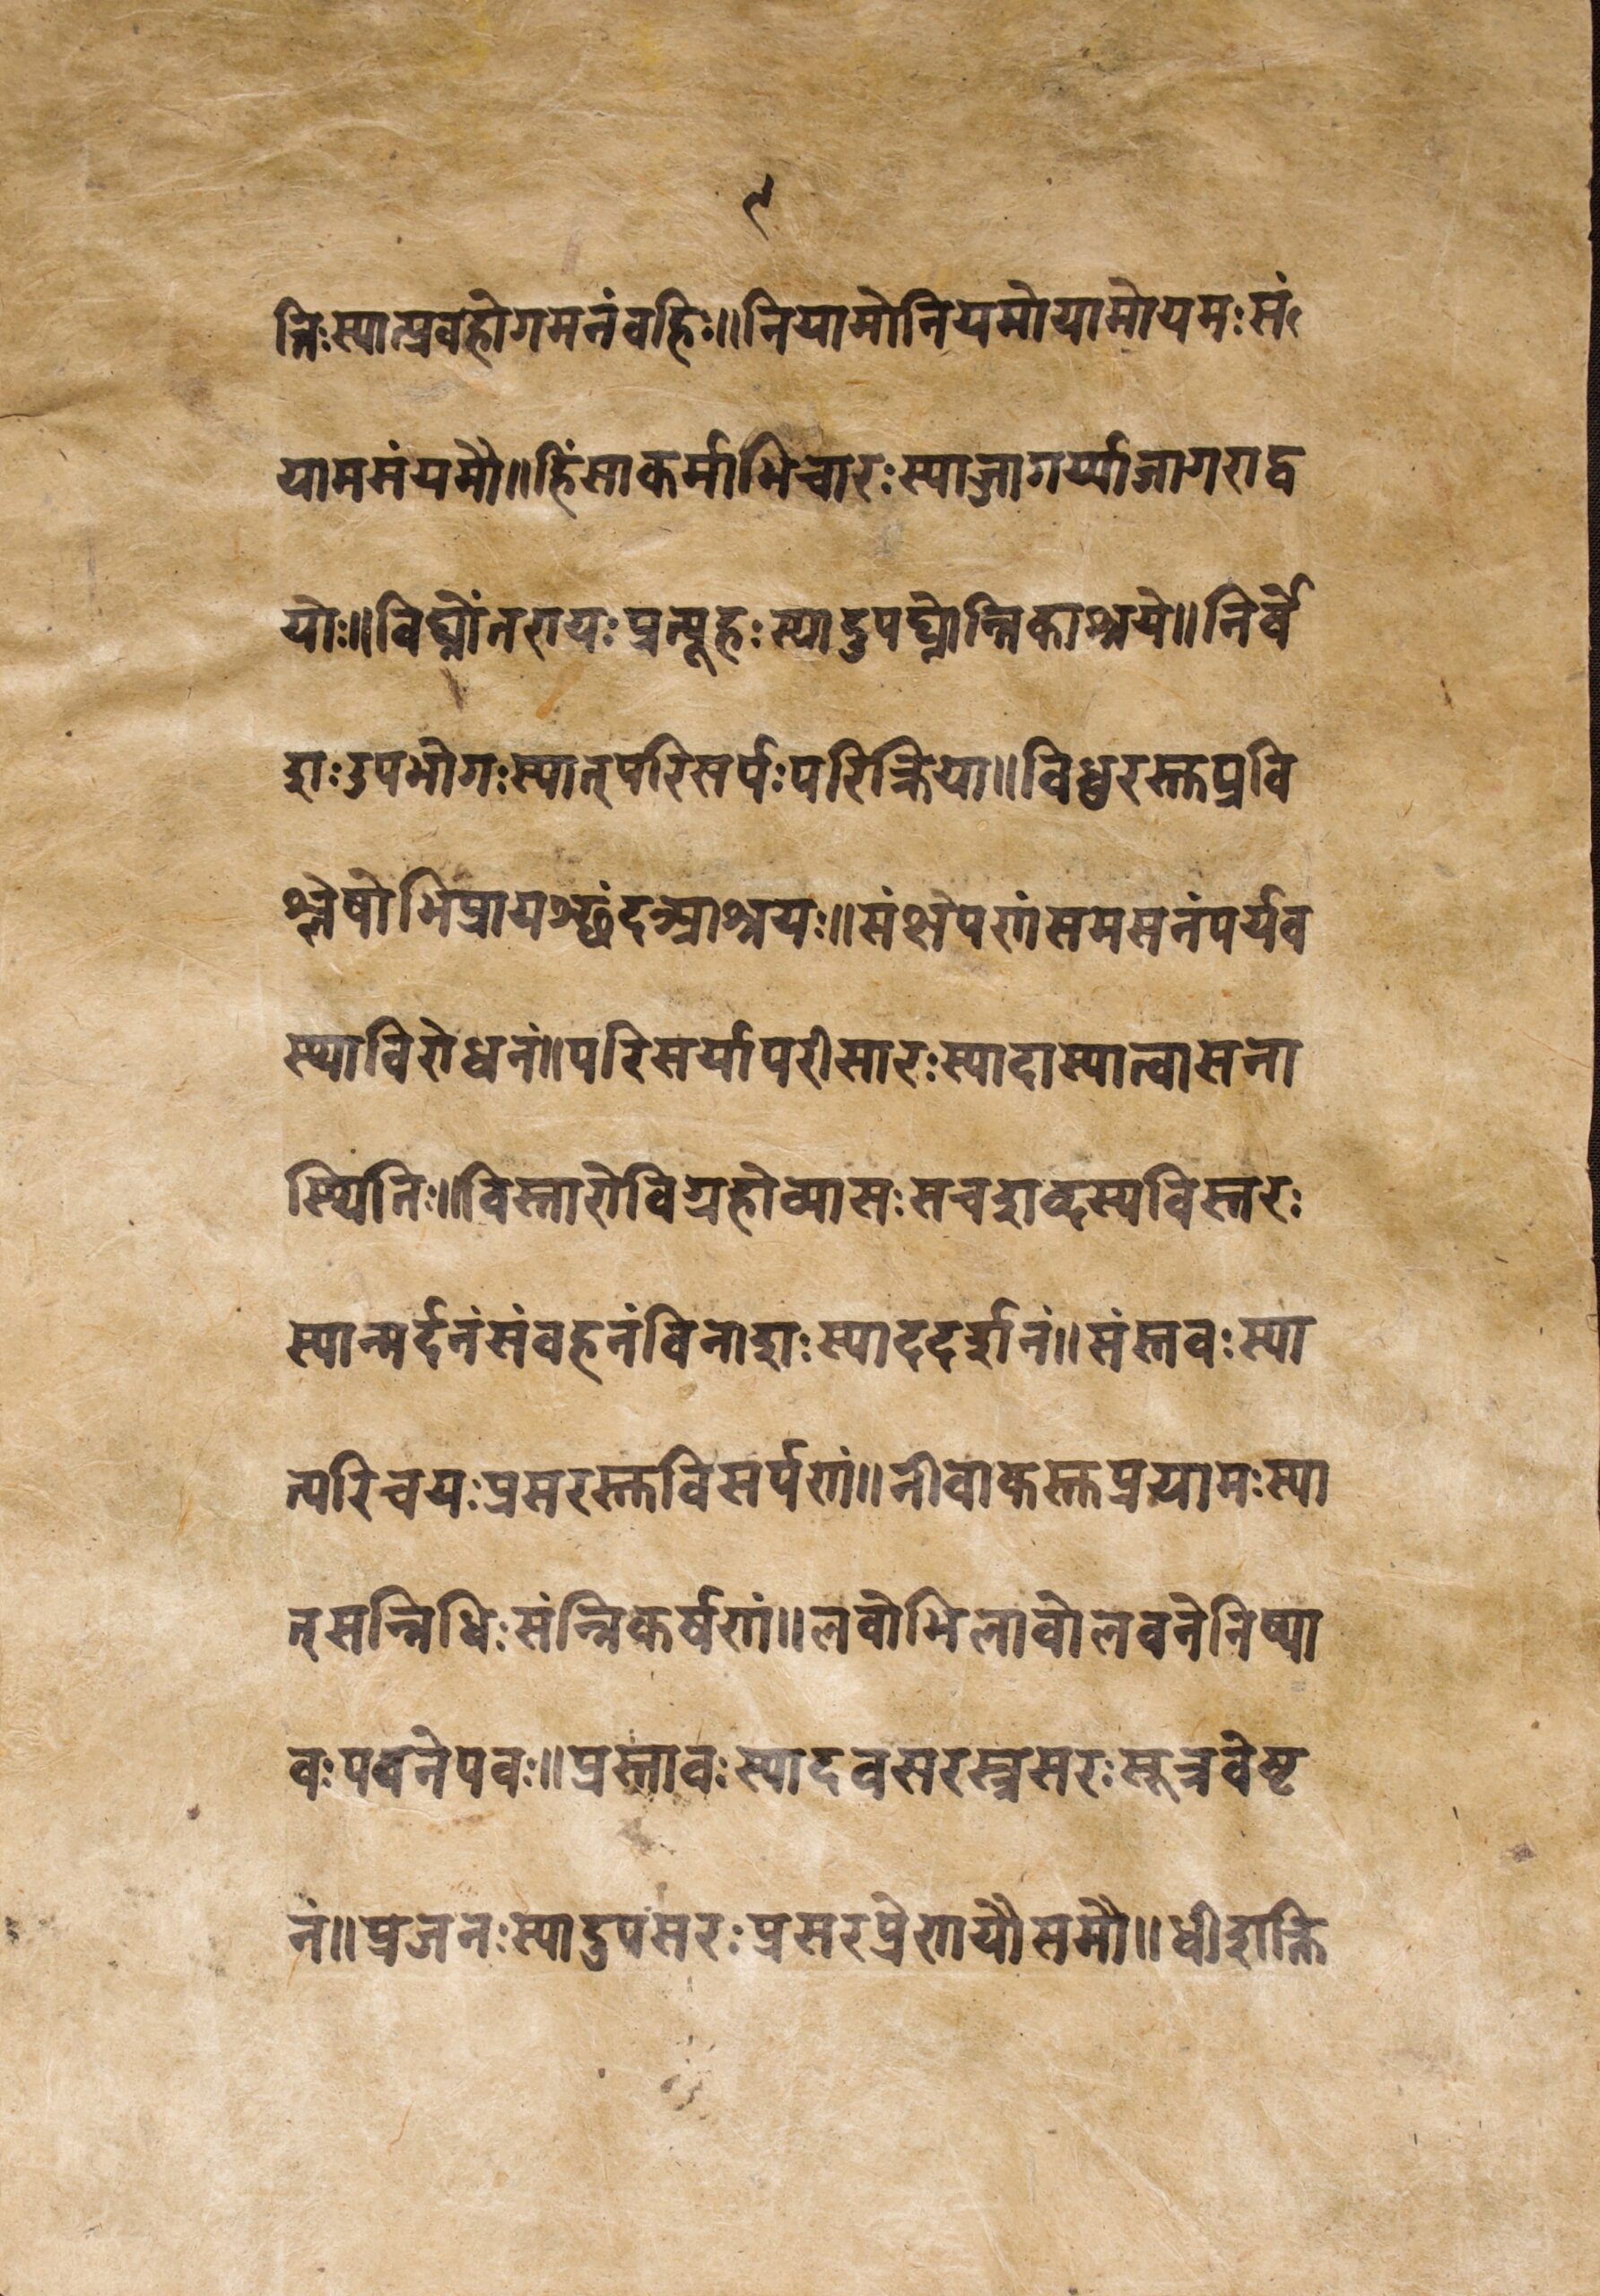 ९
त्तिःस्यात्प्रवहोगमनंवहिः॥नियामोनियमोयामोयमःसं
याममंयमौ॥हिंसाकर्माभिचारःस्याज्जागर्य्याजागराद्व
योः॥विघ्नोंतरायःप्रत्यूहःस्यादुपघ्नोन्तिकाश्रये॥निर्वे
शःउपभोगःस्यात्परिसर्पःपरिक्रिया॥विधुरस्तप्रवि
श्लेषोभिप्रायश्छंदआश्रयः॥संक्षेपणंसमसनंपर्यव
स्थाविरोधनं॥परिसर्यापरीसारःस्यादास्यात्वासना
स्थितिः॥विस्तारोविग्रहोव्यासःसचशब्दस्यविस्तरः
स्यान्मर्दनंसंवहनंविनाशःस्याददर्शनं॥संस्तवःस्या
त्परिचयःप्रसरस्तविसर्पणं॥नीवाकस्तप्रयामःस्या
त्सन्निधिःसंन्निकर्षणं॥लवोभिलावोलवनेनिष्पा
वःपवनेपवः॥प्रस्तावःस्यादवसरस्त्रसरःसूत्रवेष्ट
नं॥प्रजनःस्यादुपसरःप्रसरप्रेणयौसमौ॥धीशक्ति